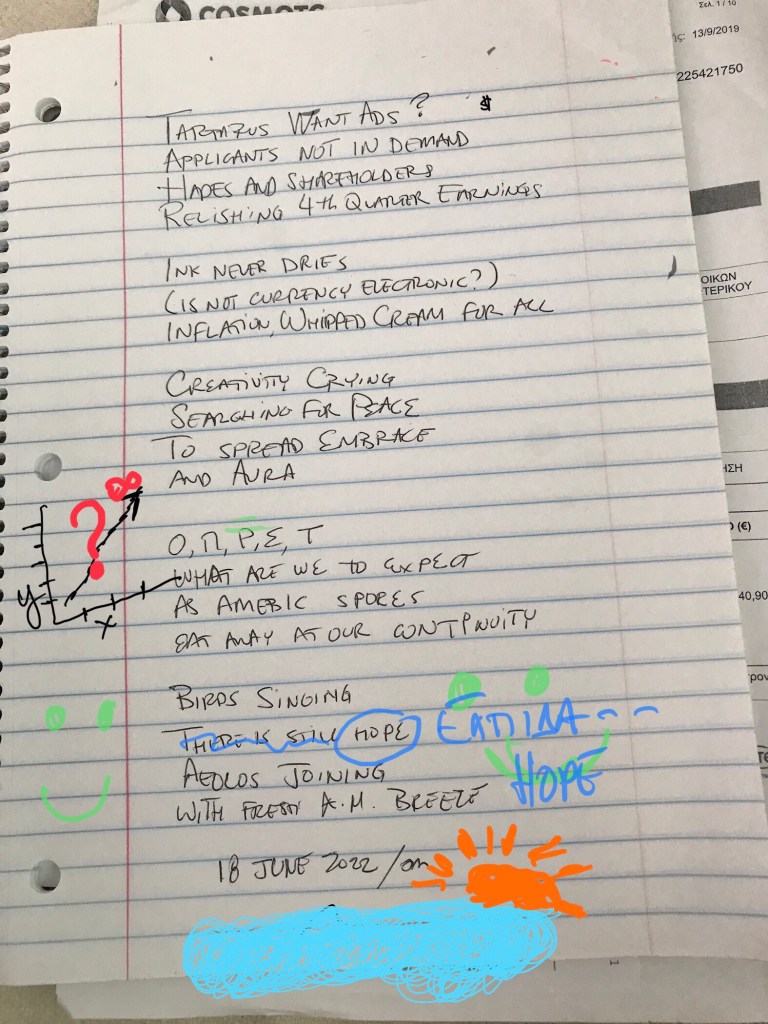 COSMOTE
Σελ. 1 / 10
13/9/2019
225421750
TARTARUS WANT ADS? $
APPLICANTS NOT IN DEMAND
HADES AND SHAREHOLDERS
RELISHING 4th QUARTER EARNINGS
INK NEVER DRIES
(IS NOT CURRENCY ELECTRONIC?)
INFLATION, WHIPPED CREAM FOR ALL
CREATIVITY CRYING
SEARCHING FOR PEACE
TO SPREAD EMBRACE
AND AURA
? ∞
y
x
Ο, Π, Ρ, Σ, Τ
WHAT ARE WE TO EXPECT
AS AMEBIC SPORES
EAT AWAY AT OUR CONTINUITY
BIRDS SINGING
THERE IS STILL HOPE ΕΛΠΙΔΑ--
AEOLOS JOINING HOPE
WITH FRESH A.M. BREEZE
18 JUNE 2022/am
ΟΙΚΩΝ
ΤΕΡΙΚΟΥ
ΗΣΗ
(€)
40,90